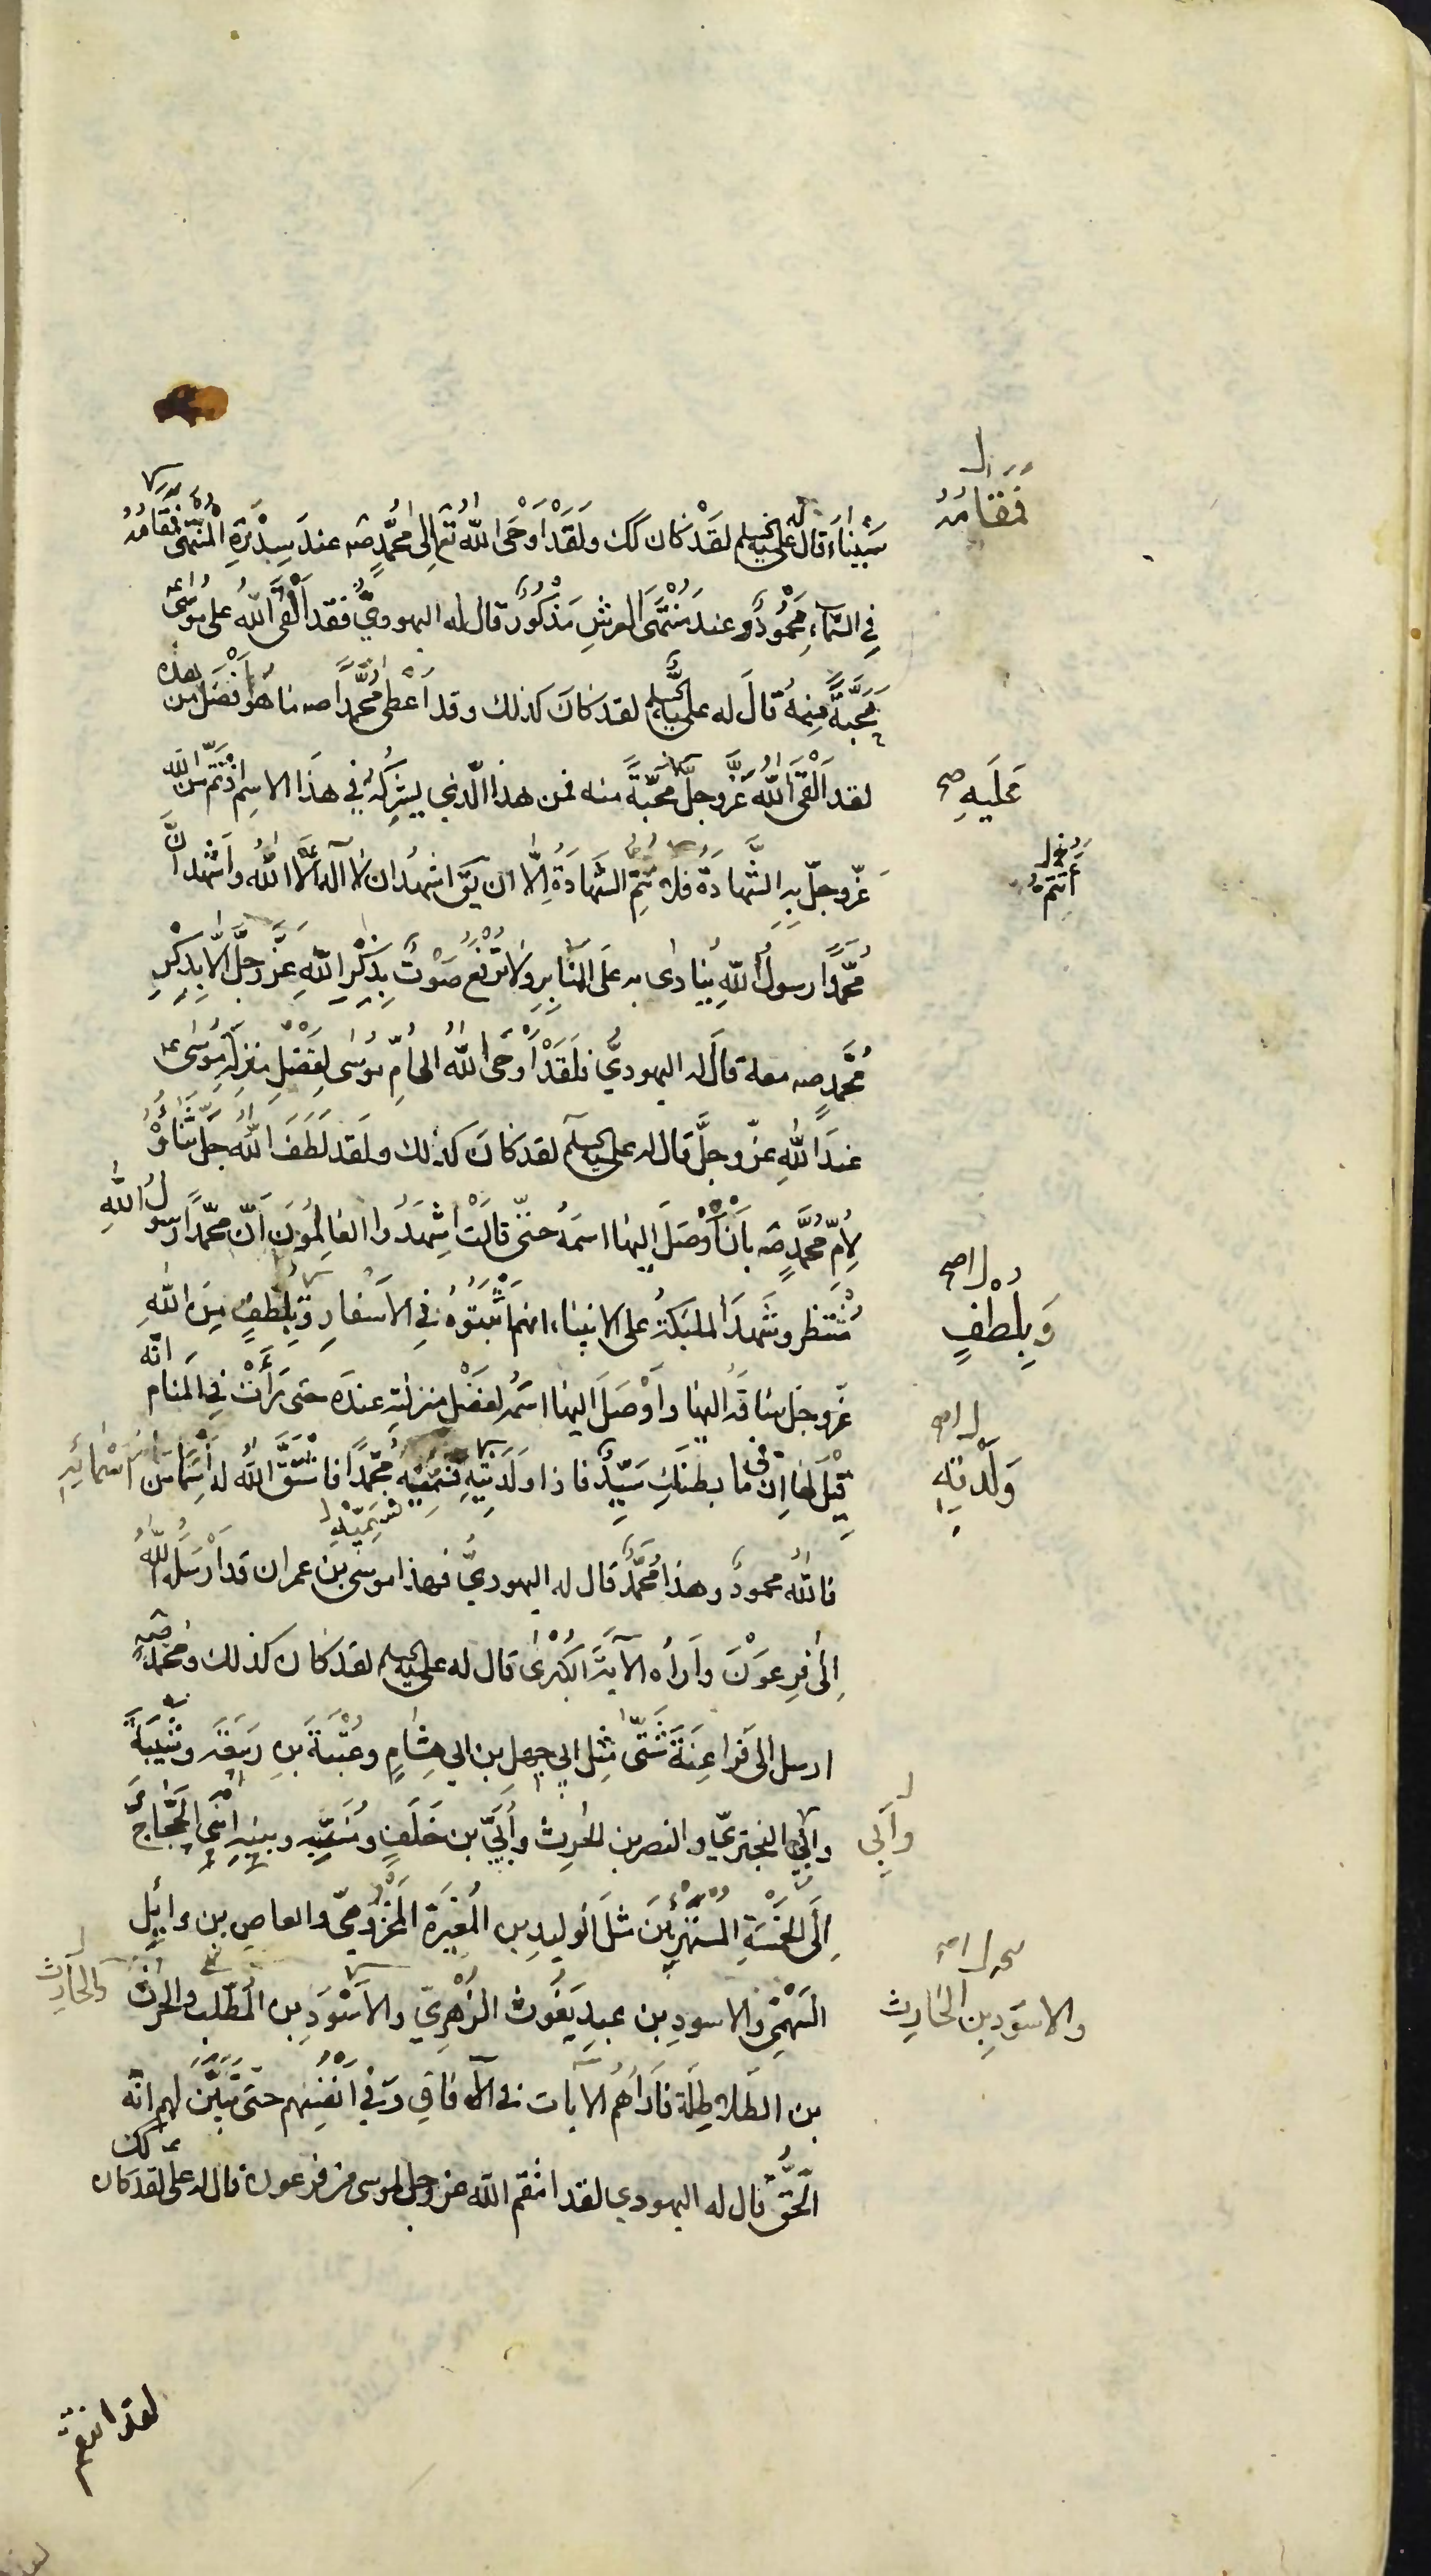 سَيْنَاءَ قال له علي عليه السلم لَقَدْ كان كك وَلَقَدْ أَوْحَى اللهُ تع إلى مُحَمَّدٍ صه عندَ سِدْرَةِ الْمُنْتَهى فَمَقَامُهُ
فِي السَّمَاءِ مَحْمُودٌ وعندَ مُنْتَهَى العرشِ مَذْكُورٌ قال له اليهوديُّ فقد أَلْقَى اللهُ على مُوسَى ع
مَحَبَّةً مِنْهُ قالَ له علي عليه السلم لقد كانَ كذلك وقد أَعْطى مُحَمَّداً صه ما هُوَ أَفْضَلُ من هذه
لقد أَلْقَى اللهُ عَزَّ وجلَّ مَحَبَّةً منه فمن هذا الّذي يشرَكُهُ في هذَا الاسمِ اذ تَمَّ من الله
عزّ وجلّ بِهِ الشَّهادَةُ فلا تتمّ الشهادَةُ إِلّا ان يقَ اشهدُ ان لا اله الّا اللهُ وأَشْهد انَّ
مُحَمَّداً رسولُ اللهِ يُنادى به على المنابِرِ ولا تُرْفَعُ صَوْتٌ بِذِكْرِ اللهِ عَزَّ وجلَّ الّا بِذِكْرِ
مُحَمَّدٍ صه معه قالَ له اليهوديُّ فلَقَدْ أَوْحَى اللهُ الى أُمِّ مُوسَى لِفَضْلِ مَنْزِلَةِ مُوسَى ع
عندَ اللهِ عزّ وجلَّ قال له علي عليه السلم لقد كانَ كذلك ولَقد لَطَفَ اللهُ جَلَّ ثَناؤُهُ
لِأُمِّ مُحَمَّدٍ صه بأَنْ أَوْصَلَ إليها اسمَهُ حتّى قالَتْ أَشْهَدُ والعَالِمُونَ أَنَّ محمَّداً رسولُ اللهِ
مُنْتَظَر وشَهِدَ الملئكةُ على الانبياء انهم أَثْبَتُوهُ في الأَسْفارِ وَبِلُطْفٍ مِنَ اللهِ
عزّ وجل ساقَهُ إليها وأَوْصَلَ اليها اسمَهُ لِفَضْلِ منزلتِهِ عندَه حتى رَأَتْ في المَنامِ انّه
قِيْلَ لها انّ ما في بطنكِ سَيِّدٌ فاذا ولَدتِيهِ فسَمِّيهِ مُحَمَّداً فاشْتَقَّ اللهُ له اسْماً مِن أَسْمائِهِ
فسَمِّيْهِ ل
فاللهُ محمودٌ وهذا مُحَمَّدٌ قال له اليهوديّ فهذا موسى بن عمران قد أَرْسَلَهُ اللهُ
إِلى فِرعَوْنَ وأَراه الآيَةَ الكُبْرى قال له علي عليه السلم لقد كان كذلك ومُحَمَّد صه
ارسل الى فَراعِنَةٍ شَتّى مثل ابي جهلِ بن ابي هِشامٍ وعُتْبَةَ بنِ ربيعَةَ وشَيْبَةَ
وابي البختريّ والنضر بن الحرث وأُبَيِّ بن خَلَفٍ ومُنَبِّهٍ ونبيهٍ ابْنَيِ الحَجّاجِ
إِلَى الخَمْسَةِ المُسْتَهْزِئينَ مثلَ الوليدِ بنِ المُغيرَةِ المَخْزُوميّ والعاصِ بن وائِلٍ
السَّهْمِيّ والاسودِ بن عبدِ يَغُوثَ الزُهْريّ والأَسْوَدِ بن المُطَّلِب والحرث
بن الطَلاطِلَة فأَراهُمُ الآياتِ في الآفاقِ وفي أَنْفُسِهم حتى تَبَيَّنَ لهم انَّه
الحَقُّ قال له اليهودي لقد انتقم الله عز وجل لموسى من فرعون قال له علي ع لقد كان كك
فَمَقَامُهُ ل
عَلَيهِ صح
وَبِلُطْفٍ ل صح
وَلَدْتِهِ
وأَبي ل
والاسوَدِ بن الحَارِث
والحَارِث ل
لقد انتقم